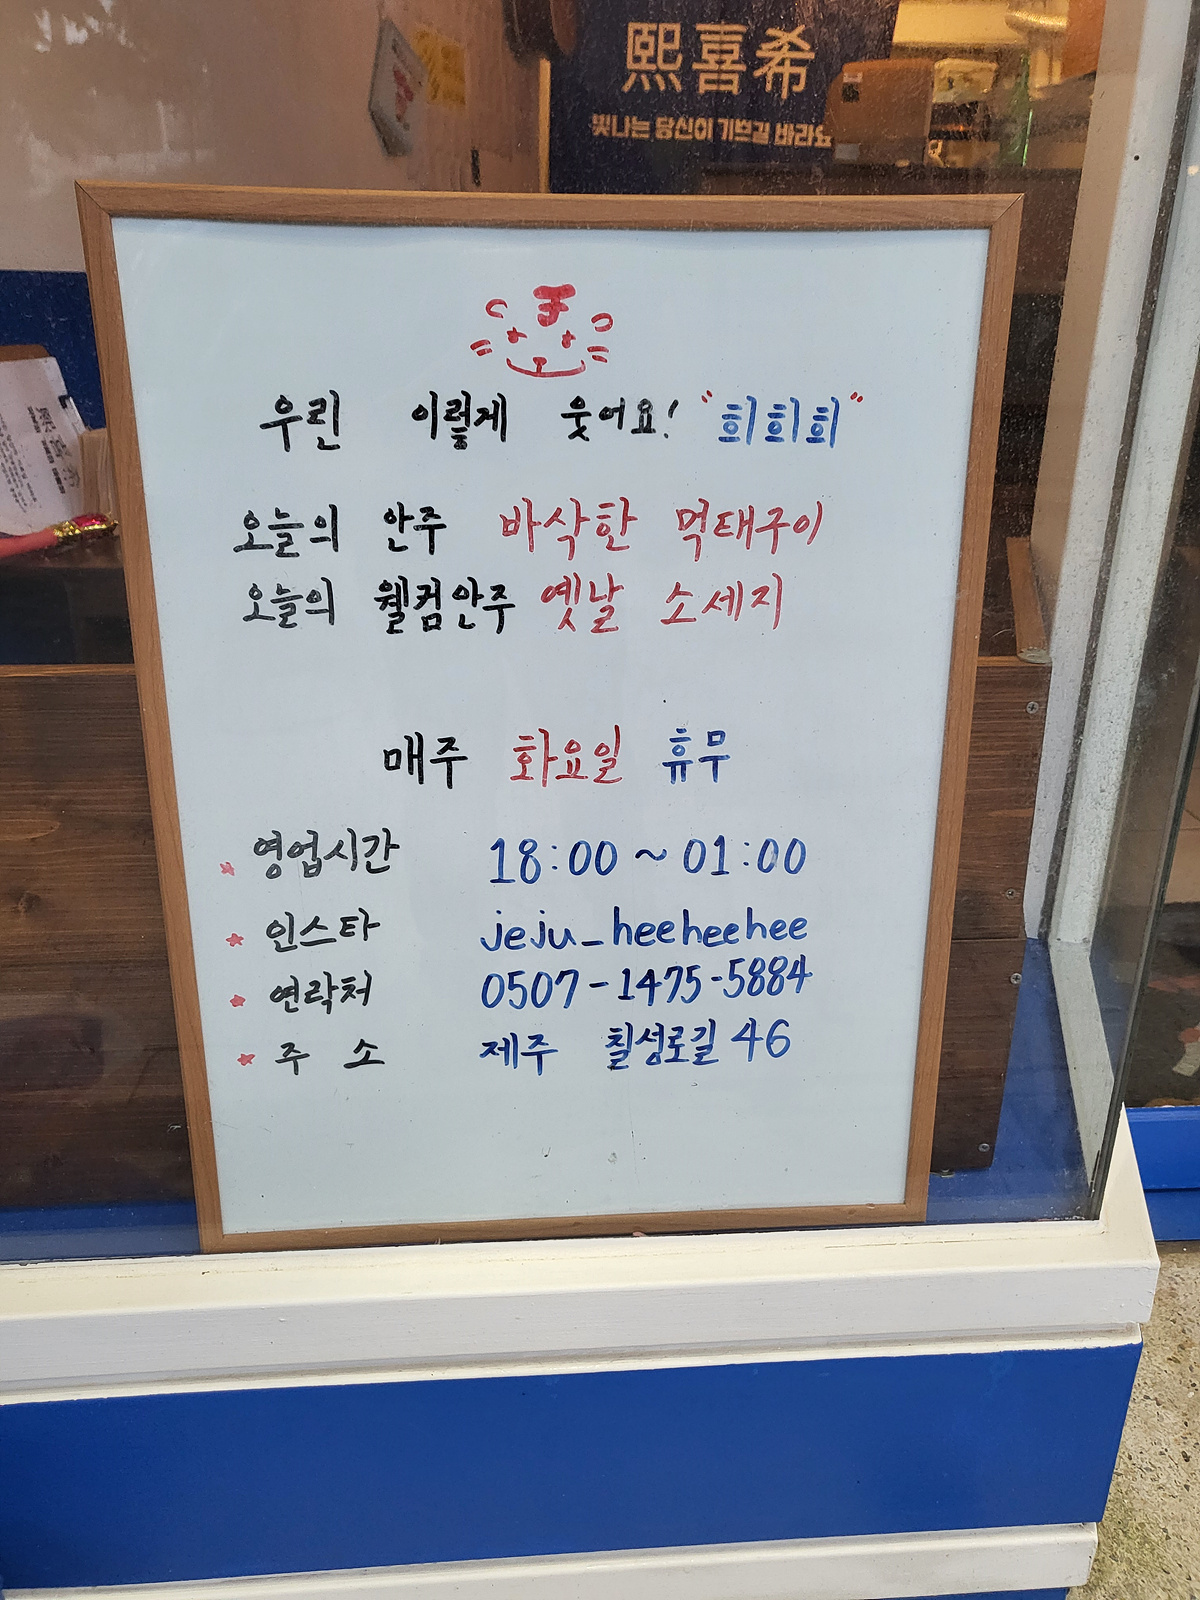 熙喜希
빛나는 당신이 기쁘길 바라요
우린 이렇게 웃어요! "희희희"
오늘의 안주 바삭한 먹태구이
오늘의 웰컴안주 옛날 소세지
매주 화요일 휴무
* 영업시간 18:00 ~ 01:00
* 인스타 jeju_heeheehee
* 연락처 0507-1475-5884
* 주 소 제주 칠성로길 46